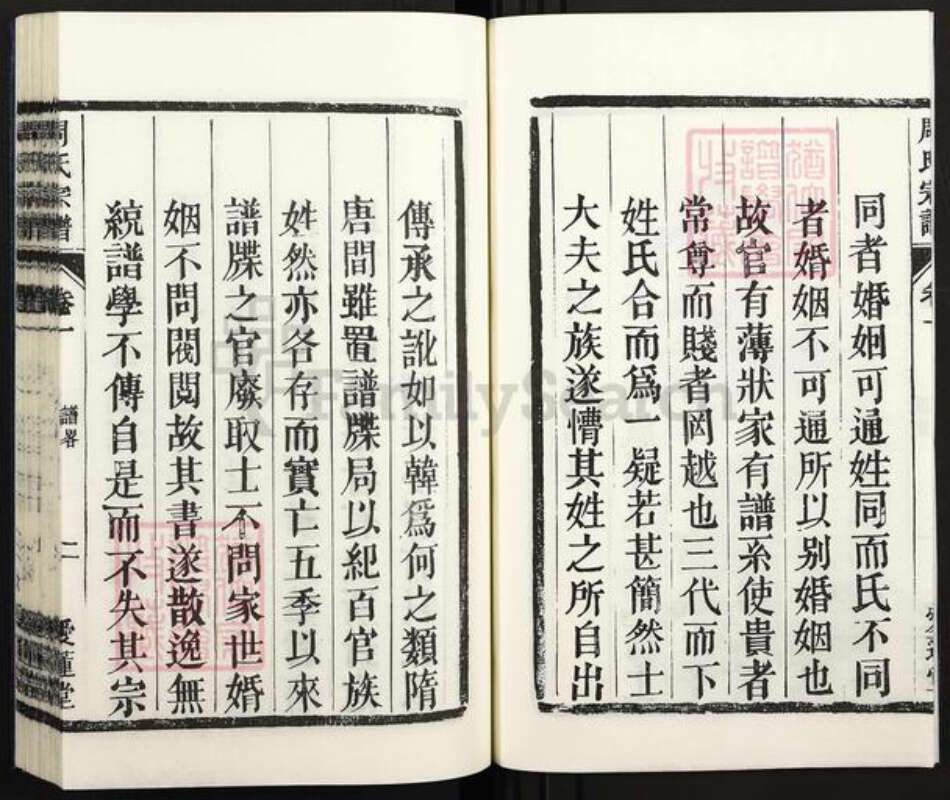 同者婚姻可通姓同而氏不同
者婚姻不可通所以别婚姻也
故官有薄狀家有譜系使貴者
常尊而賤者罔越也三代而下
姓氏合而爲一疑若甚簡然士
大夫之族遂懵其姓之所自出
傳承之訛如以韓爲何之類隋
唐間雖置譜牒局以紀百官族
姓然亦各存而實亡五季以來
譜牒之官廢取士不問家世婚
姻不問閥閲故其書遂散逸無
統譜學不傳自是而不失其宗
周氏宗譜
卷一
譜畧
二
愛蓮堂
FamilySearch